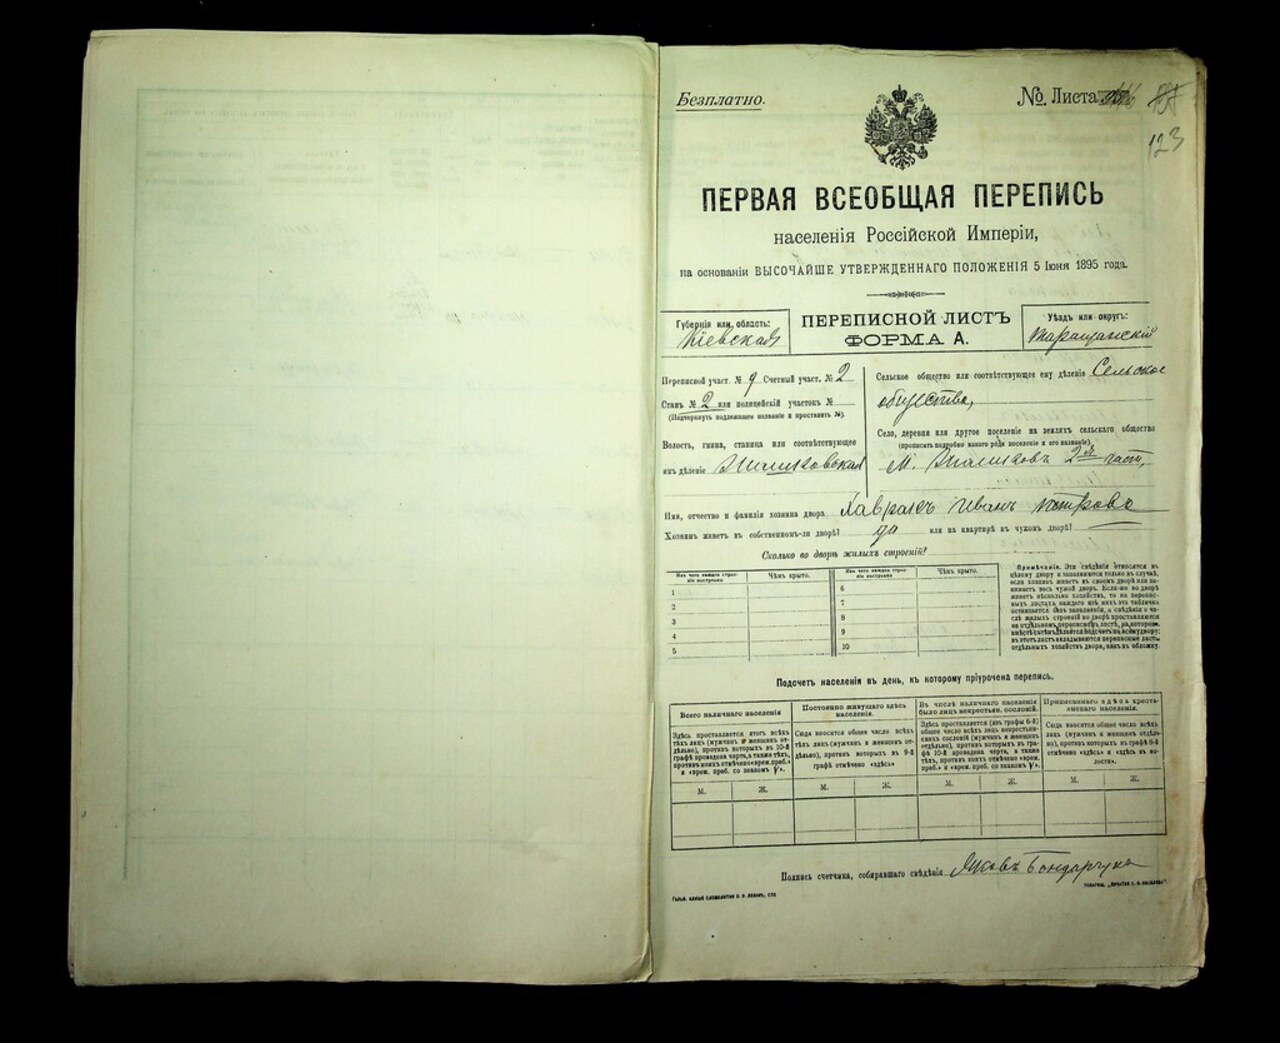 Безплатно.
№ Листа
123
ПЕРВАЯ ВСЕОБЩАЯ ПЕРЕПИСЬ
населенія Россійской Имперіи,
на основаніи ВЫСОЧАЙШЕ УТВЕРЖДЕННАГО ПОЛОЖЕНІЯ 5 Іюня 1895 года.
Губернія или область:
Кіевская
ПЕРЕПИСНОЙ ЛИСТЪ
ФОРМА А.
Уѣздъ или округъ:
Таращанскій
Переписной участ. № 9 Счетный участ. № 2
Станъ № 2 или полицейскій участокъ №
(Подчеркнуть надлежащее названіе и проставить №).
Волость, гмина, станица или соотвѣтствующее
имъ дѣленіе
Сельское общество или соотвѣтствующее ему дѣленіе Сельское
общество,
Село, деревня или другое поселеніе на земляхъ сельскаго общества
(прописать подробно какого рода поселеніе и его названіе).
М. 2я част,
Имя, отчество и фамилія хозяина двора Хавралъ Иванъ Петровъ
Хозяинъ живетъ въ собственномъ-ли дворѣ? да или на квартирѣ въ чужомъ дворѣ?
Сколько во дворѣ жилыхъ строеній?
Изъ чего каждое строеніе выстроено Чѣмъ крыто. Изъ чего каждое строеніе выстроено Чѣмъ крыто.
1 6
2 7
3 8
4 9
5 10
Примѣчаніе. Эти свѣдѣнія относятся къ
цѣлому двору и заполняются только въ случаѣ,
если хозяинъ живетъ въ своемъ дворѣ или занимаетъ
весь чужой дворъ. Если-же во дворѣ
живетъ нѣсколько хозяйствъ, то на переписныхъ
листахъ каждаго изъ нихъ эта табличка
оставляется безъ заполненія, а свѣдѣнія о числѣ
жилыхъ строеній во дворѣ проставляются
на отдѣльномъ переписномъ листѣ, на которомъ
вмѣстѣ съ тѣмъ дѣлается подсчетъ по всему двору;
въ этотъ листъ вкладываются переписные листы
отдѣльныхъ хозяйствъ двора, какъ въ обложку.
Подсчетъ населенія въ день, къ которому пріурочена перепись.
Всего наличнаго населенія
Здѣсь проставляется итогъ всѣхъ
тѣхъ лицъ (мужчинъ и женщинъ отдѣльно),
противъ которыхъ въ 10-й
графѣ проведена черта, а также тѣхъ,
противъ коихъ отмѣчено «врем. преб.»
и «врем. преб. со знакомъ V».
Постоянно живущаго здѣсь
населенія.
Сюда вносится общее число всѣхъ
тѣхъ лицъ (мужчинъ и женщинъ отдѣльно),
противъ которыхъ въ 9-й
графѣ отмѣчено «здѣсь»
Въ числѣ наличнаго населенія
было лицъ некрестьян. сословій.
Здѣсь проставляется (изъ графы 6-й)
общее число всѣхъ лицъ некрестьянскихъ
сословій (мужчинъ и женщинъ
отдѣльно), противъ которыхъ въ графѣ
10-й проведена черта, а также
тѣхъ, противъ коихъ отмѣчено «врем.
преб.» и «врем. преб. со знакомъ V».
Приписаннаго здѣсь крестьянскаго
населенія.
Сюда вносится общее число всѣхъ
лицъ (мужчинъ и женщинъ отдѣльно),
противъ которыхъ въ графѣ 8-й
отмѣчено «здѣсь» и «здѣсь въ волости».
М. Ж. М. Ж. М. Ж. М. Ж.
Подпись счетчика, собиравшаго свѣдѣнія Яковъ Бондарчукъ